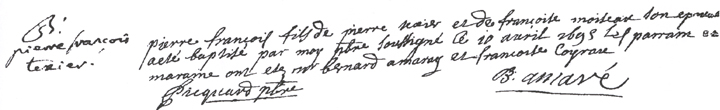 B.
pierre francois
texier.
pierre françois fils de pierre texier et de françoise moiteau son epouse
a eté baptisé par moy ptre soussigné le 10 avril 1695 les parrain et
maraine ont eté mr bernard amaray et francoise Coyrase
ptre
B. amaré